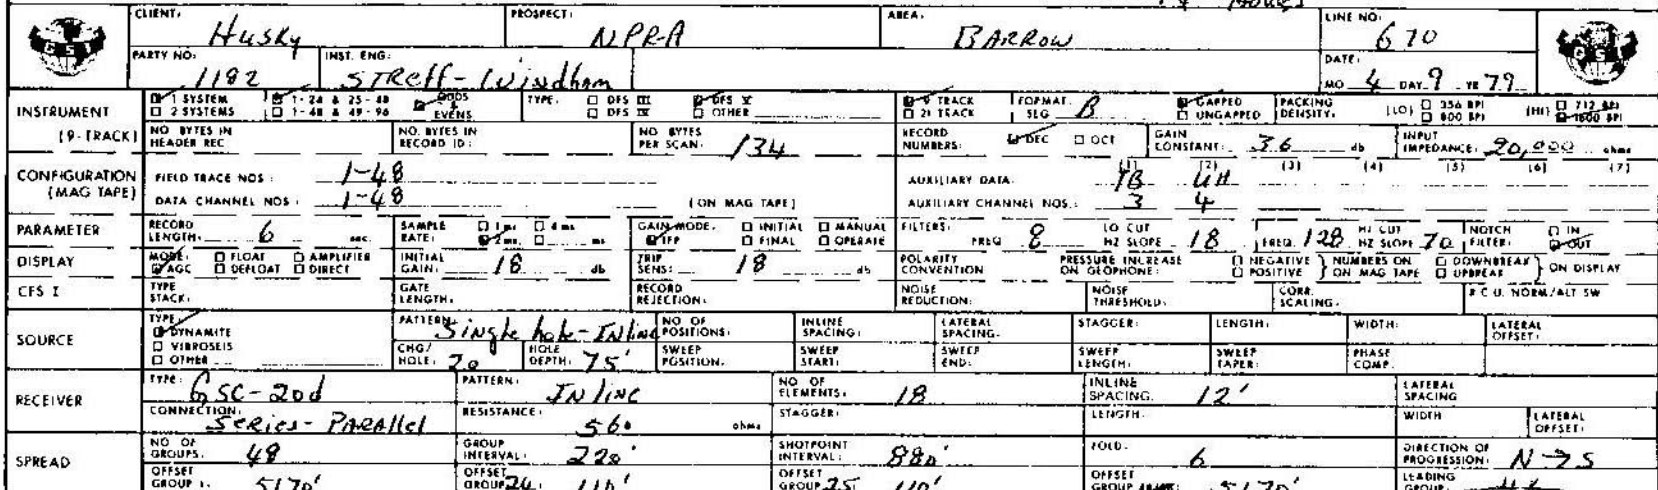 CLIENT: Husky PROSPECT: NPRA AREA: BARROW LINE NO: 670
GSI PARTY NO: 1182 INST. ENG: STREFF-Windham DATE: MO 4 DAY 9 YR 79 GSI
INSTRUMENT 1 SYSTEM 1-24 & 25-48 ODDS TYPE: DFS III DFS V 9 TRACK FORMAT: B GAPPED PACKING (LO) 356 BPI (HI) 712 BPI
2 SYSTEMS 1-48 & 49-96 & EVENS DFS IV OTHER 21 TRACK SEG UNGAPPED DENSITY: 800 BPI 1600 BPI
(9-TRACK) NO BYTES IN HEADER REC NO. BYTES IN RECORD ID: NO BYTES PER SCAN: 134 RECORD NUMBERS: DEC OCT GAIN CONSTANT: 36 db INPUT IMPEDANCE: 20,000 ohms
CONFIGURATION FIELD TRACE NOS: 1-48 AUXILIARY DATA: (1) TB (2) UH (3) (4) (5) (6) (7)
(MAG TAPE) DATA CHANNEL NOS: 1-48 (ON MAG TAPE) AUXILIARY CHANNEL NOS.: 3 4
PARAMETER RECORD LENGTH: 6 sec. SAMPLE RATE: 1 ms 4 ms 2 ms. ms GAIN MODE: INITIAL MANUAL IFP FINAL OPERATE FILTERS: FREQ 8 LO CUT HZ SLOPE 18 FREQ. 128 HI CUT HZ SLOPE 70 NOTCH FILTER: IN OUT
DISPLAY MODE: FLOAT AMPLIFIER AGC DEFLOAT DIRECT INITIAL GAIN: 18 db TRIP SENS: 18 db POLARITY CONVENTION PRESSURE INCREASE ON GEOPHONE: NEGATIVE POSITIVE } NUMBERS ON MAG TAPE DOWNBREAK UPBREAK } ON DISPLAY
CFS I TYPE STACK: GATE LENGTH: RECORD REJECTION: NOISE REDUCTION: NOISE THRESHOLD: CORR. SCALING: R C U. NORM/ALT SW
SOURCE TYPE: DYNAMITE PATTERN: Single hole-INline NO OF POSITIONS: INLINE SPACING: LATERAL SPACING: STAGGER: LENGTH: WIDTH: LATERAL OFFSET:
VIBROSEIS OTHER CHG/HOLE: 20 HOLE DEPTH: 75' SWEEP POSITION: SWEEP START: SWEEP END: SWEEP LENGTH: SWEEP TAPER: PHASE COMP.
RECEIVER TYPE: GSC-20d PATTERN: INline NO OF ELEMENTS: 18 INLINE SPACING. 12' LATERAL SPACING
CONNECTION: Series-PARAllel RESISTANCE: 560 ohms STAGGER: LENGTH: WIDTH LATERAL OFFSET:
SPREAD NO OF GROUPS: 48 GROUP INTERVAL: 220' SHOTPOINT INTERVAL: 880' FOLD: 6 DIRECTION OF PROGRESSION: N→S
OFFSET GROUP 1: 5170' OFFSET GROUP 24: 110' OFFSET GROUP 25 110' OFFSET GROUP 5170' LEADING GROUP: